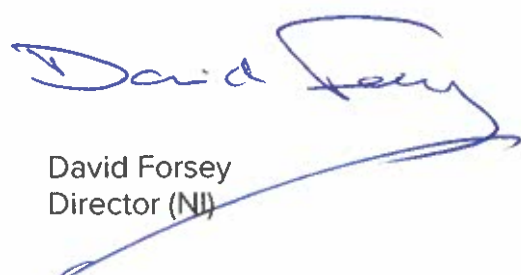 David Forsey
David Forsey
Director (NI)